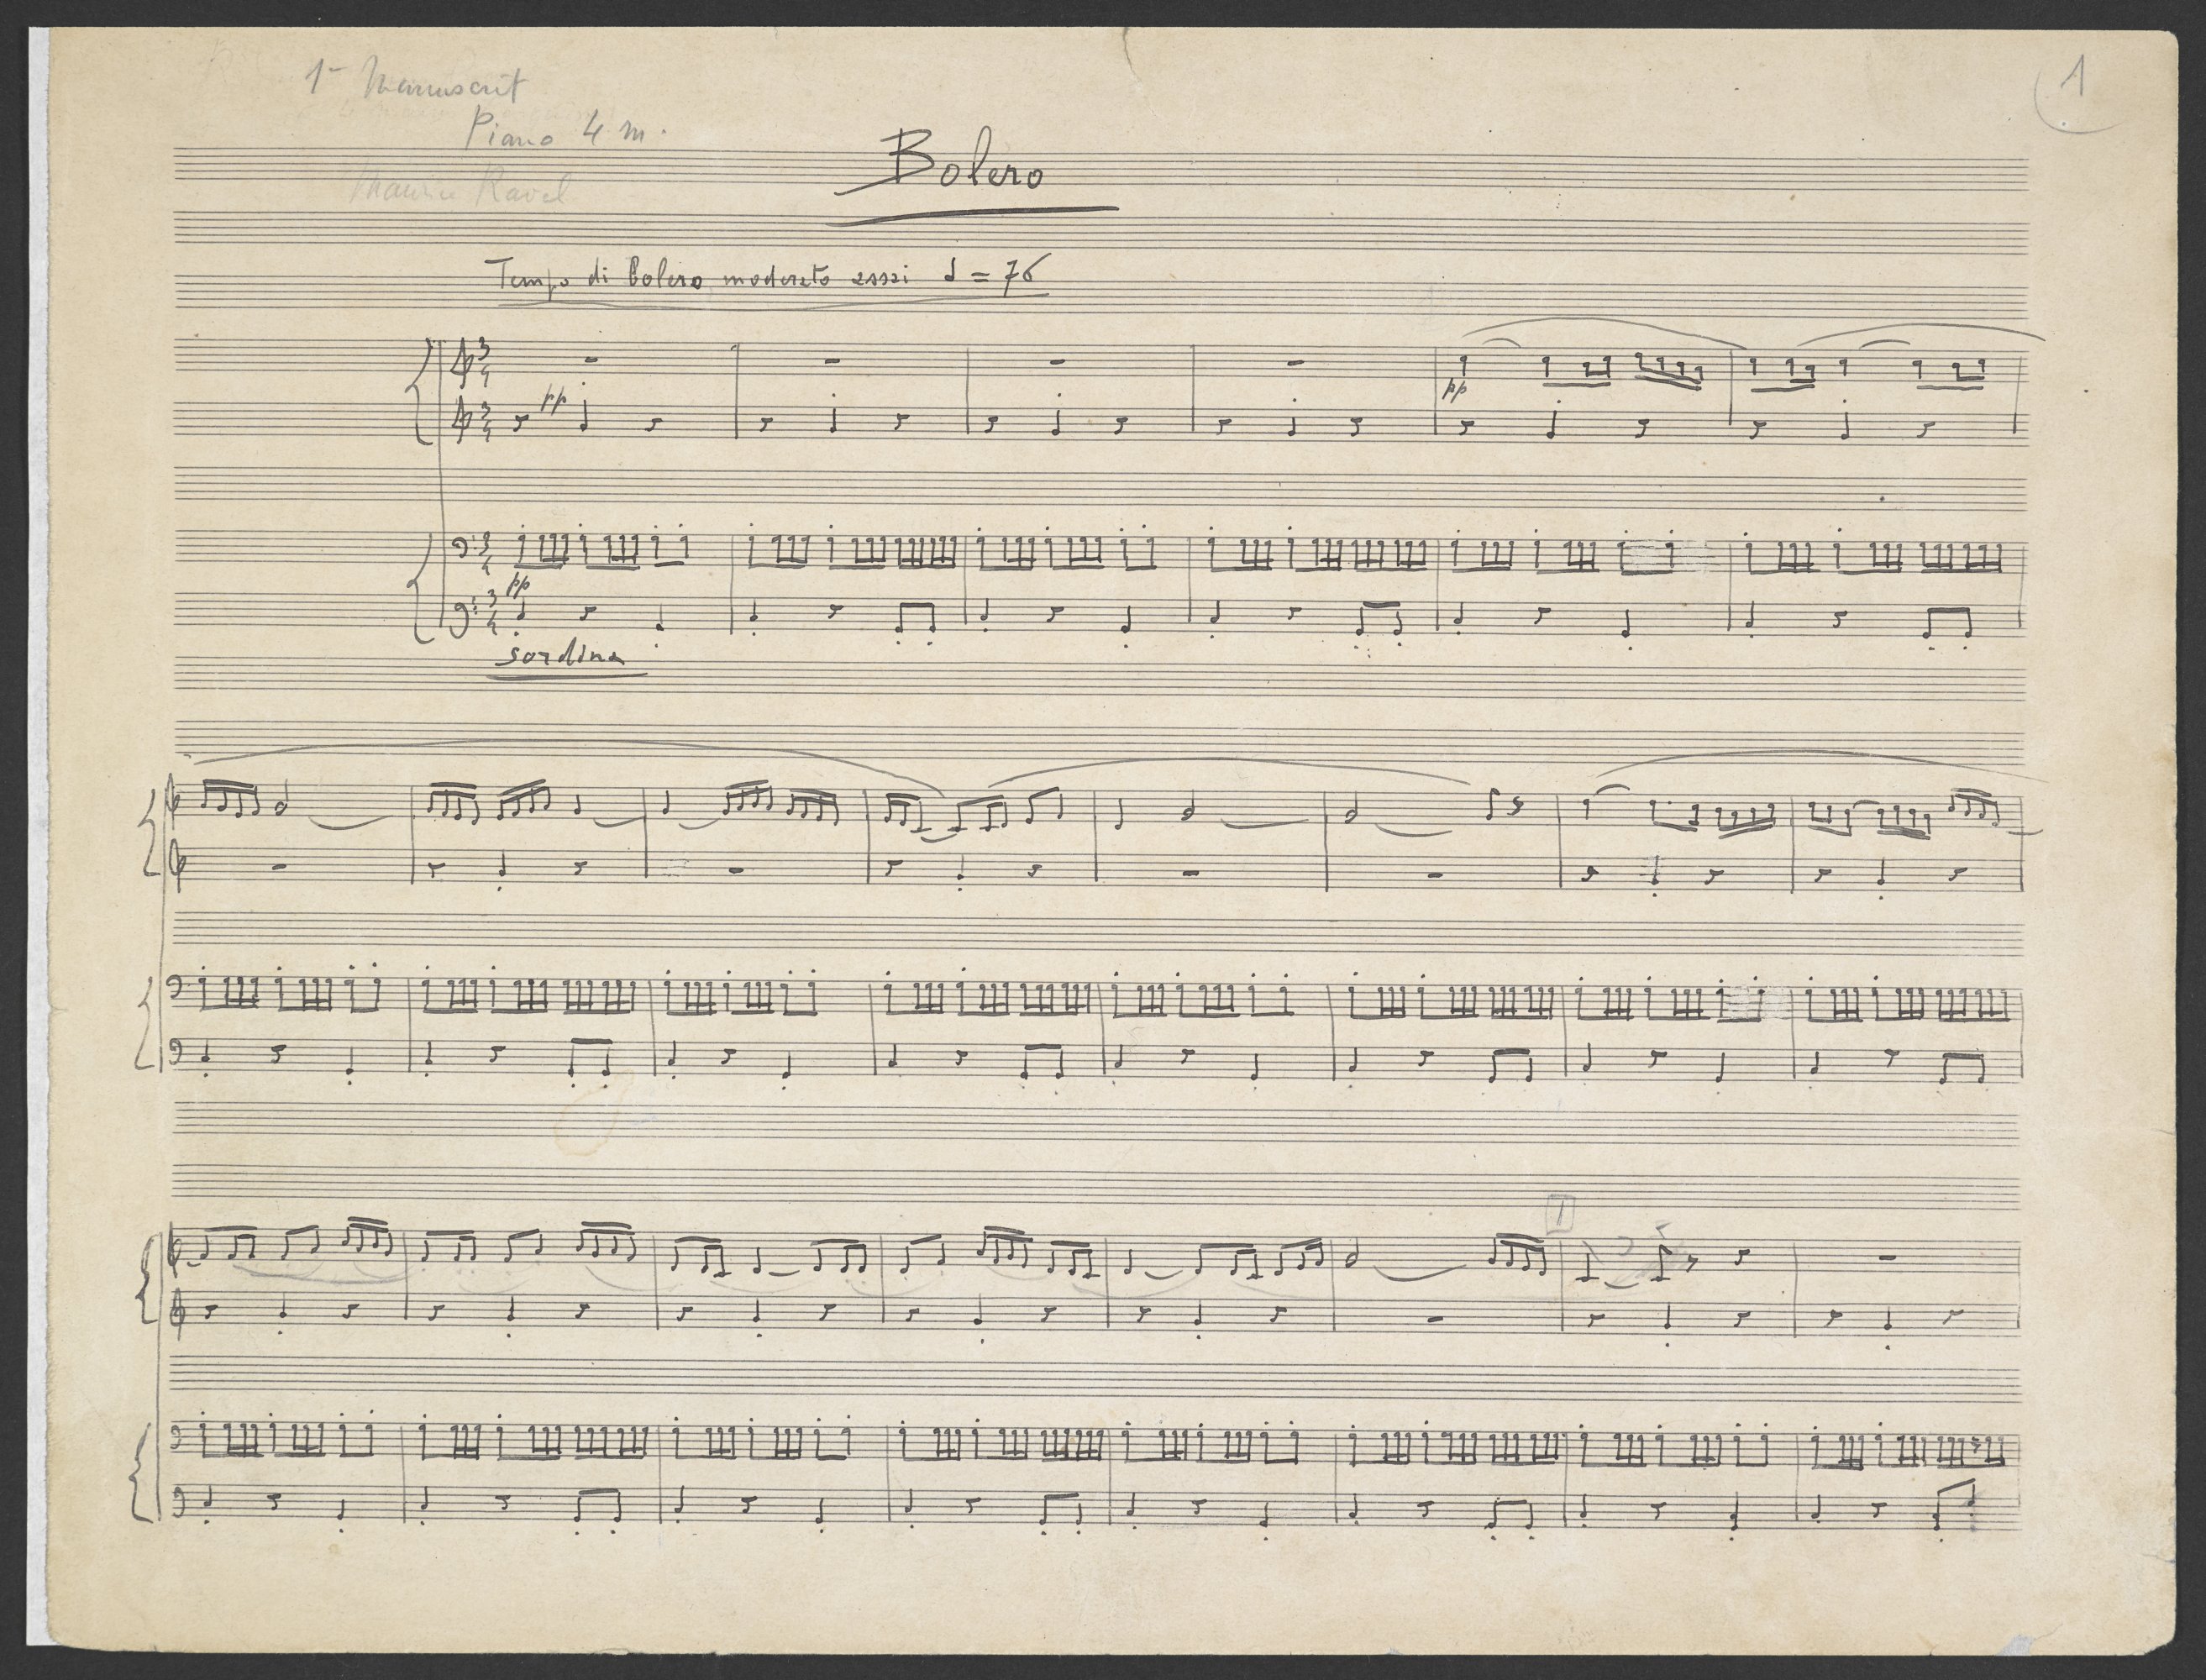 1
1r Manuscrit
Piano 4 m.
Maurice Ravel
Bolero
Tempo di Bolero moderato assai ♩ = 76
3
4
pp
pp
3
4
3
4
pp
3
4
sordina
1